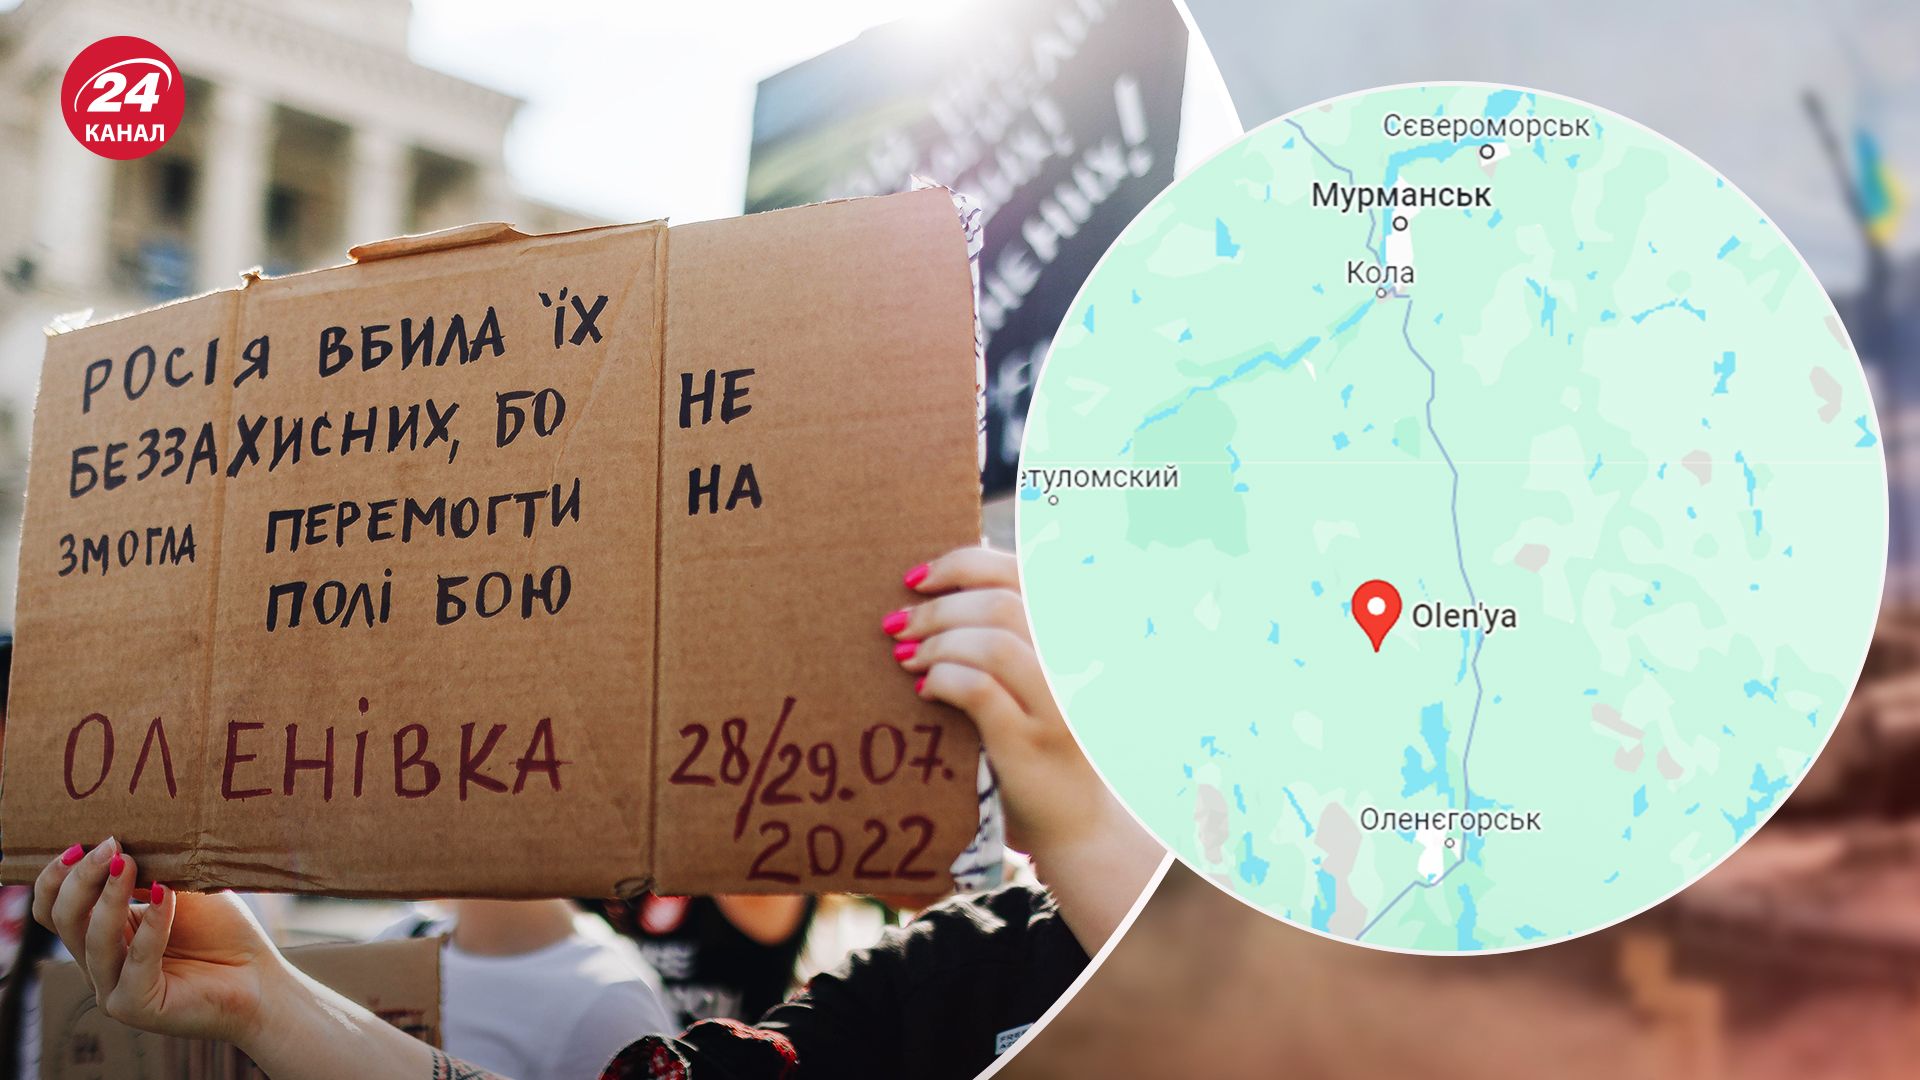 24
КАНАЛ
РОСІЯ ВБИЛА ЇХ
БЕЗЗАХИСНИХ, БО НЕ
ЗМОГЛА ПЕРЕМОГТИ НА
ПОЛІ БОЮ
ОЛЕНІВКА 28/29.07.
2022
Сєвероморськ
Мурманськ
Кола
етуломский
Olen'ya
Оленєгорськ